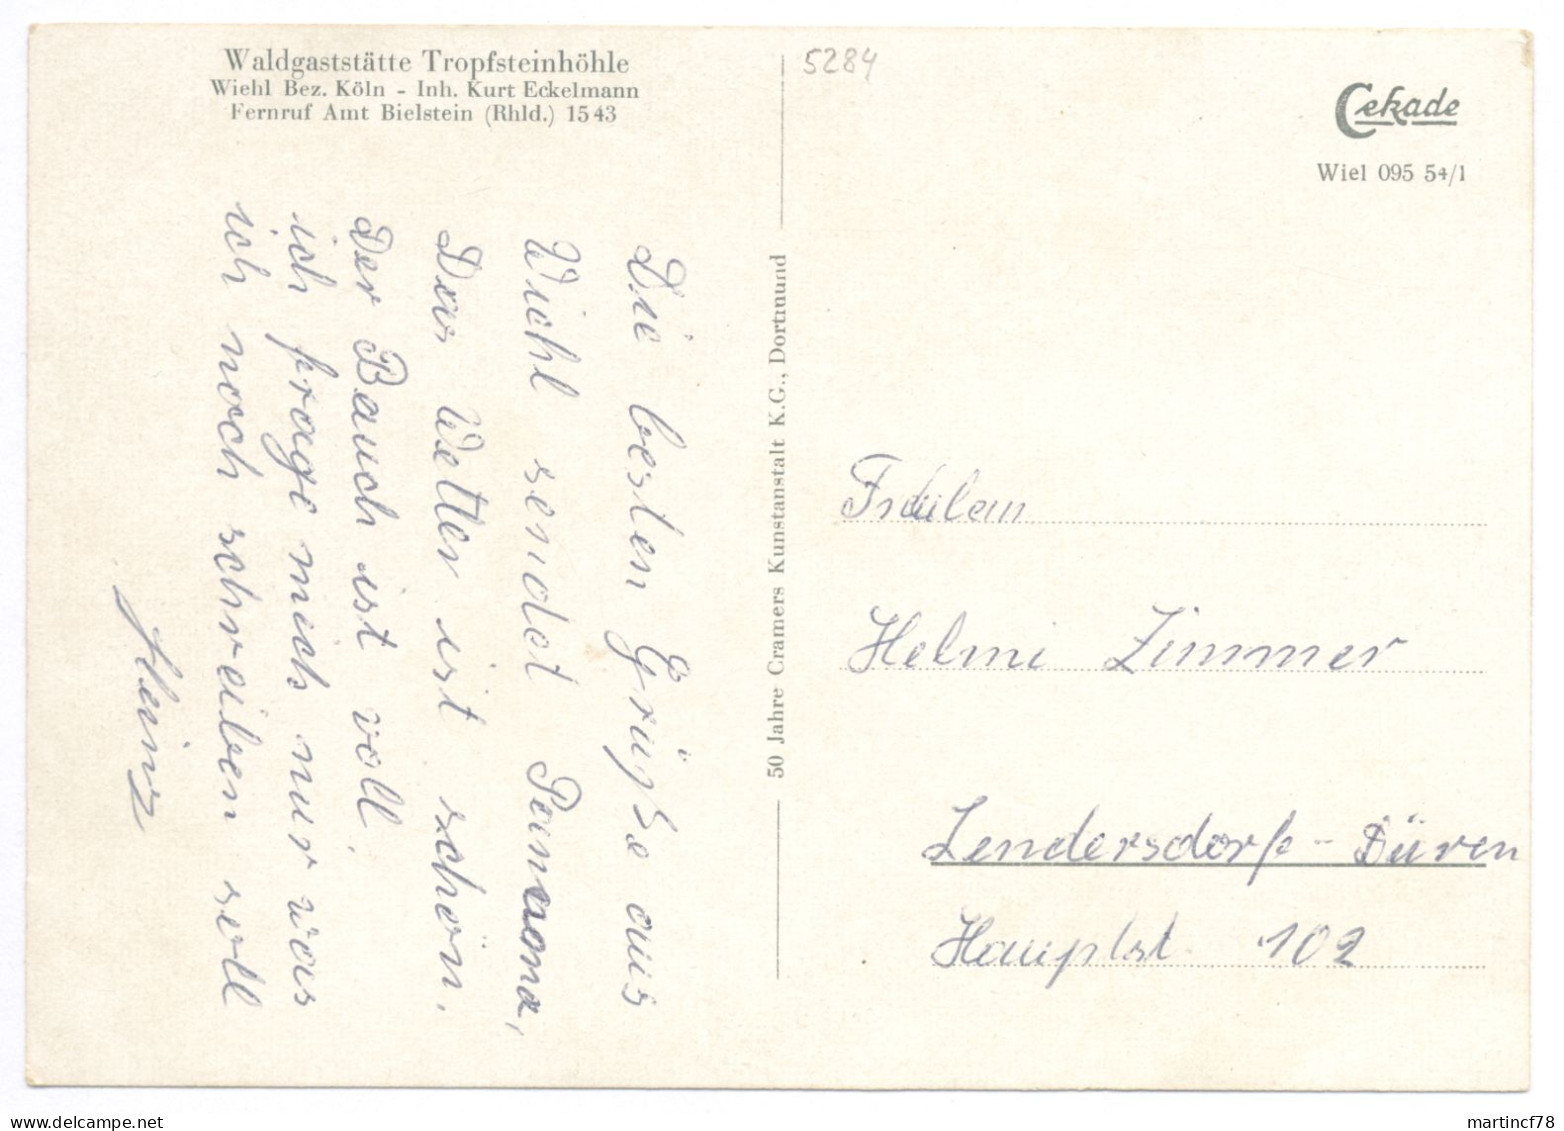 Waldgaststätte Tropfsteinhöhle
Wiehl Bez. Köln - Inh. Kurt Eckelmann
Fernruf Amt Bielstein (Rhld.) 15 43
Die besten Grüße aus
Wiehl sendet
Das Wetter ist schön.
Der Bauch ist voll,
ich frage mich nur was
ich noch schreiben soll
Heinz
50 Jahre Cramers Kunstanstalt K.G., Dortmund
5284
Cekade
Wiel 095 54/1
Fräulein
Helmi Zimmer
Lendersdorf - Düren
Hauptst. 102
delcampe.net
martincf78